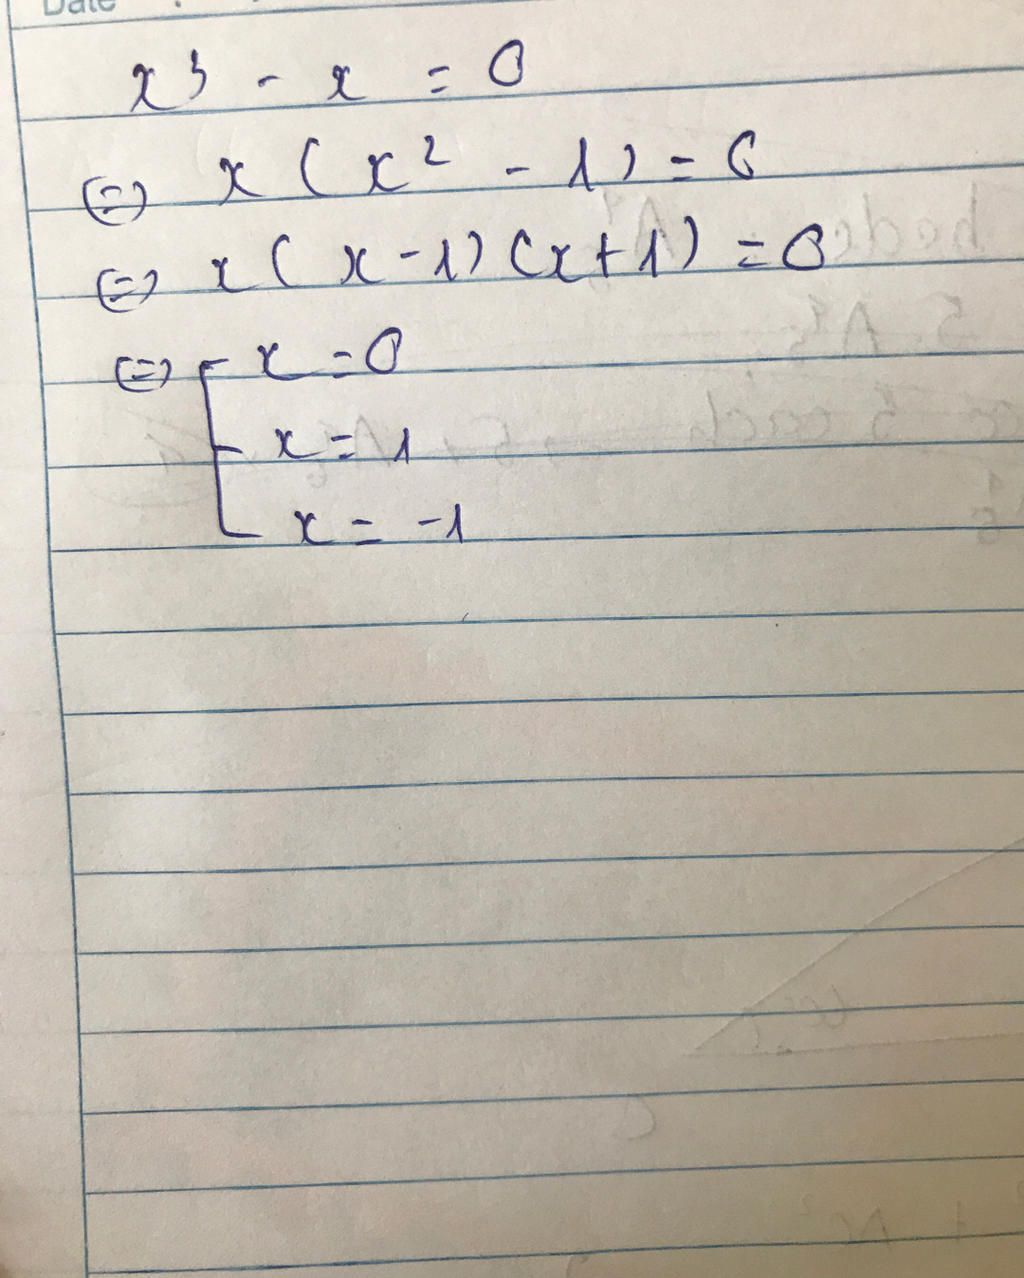 Date
x³ - x = 0
⇔ x(x² - 1) = 0
⇔ x(x-1)(x+1) = 0
⇔ [ x = 0
x = 1
x = -1